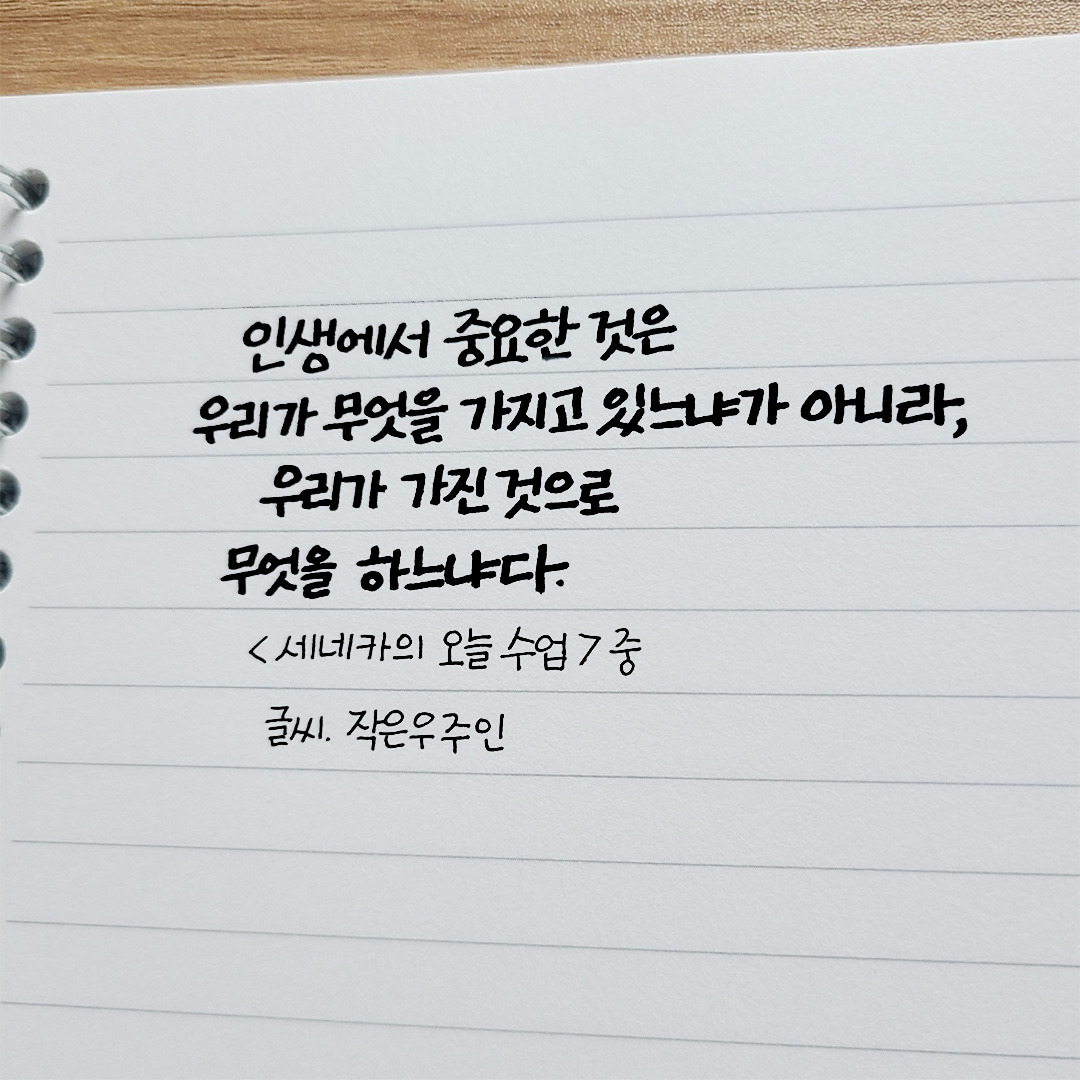 인생에서 중요한 것은
우리가 무엇을 가지고 있느냐가 아니라,
우리가 가진 것으로
무엇을 하느냐다.
<세네카의 오늘 수업> 중
글씨. 작은우주인